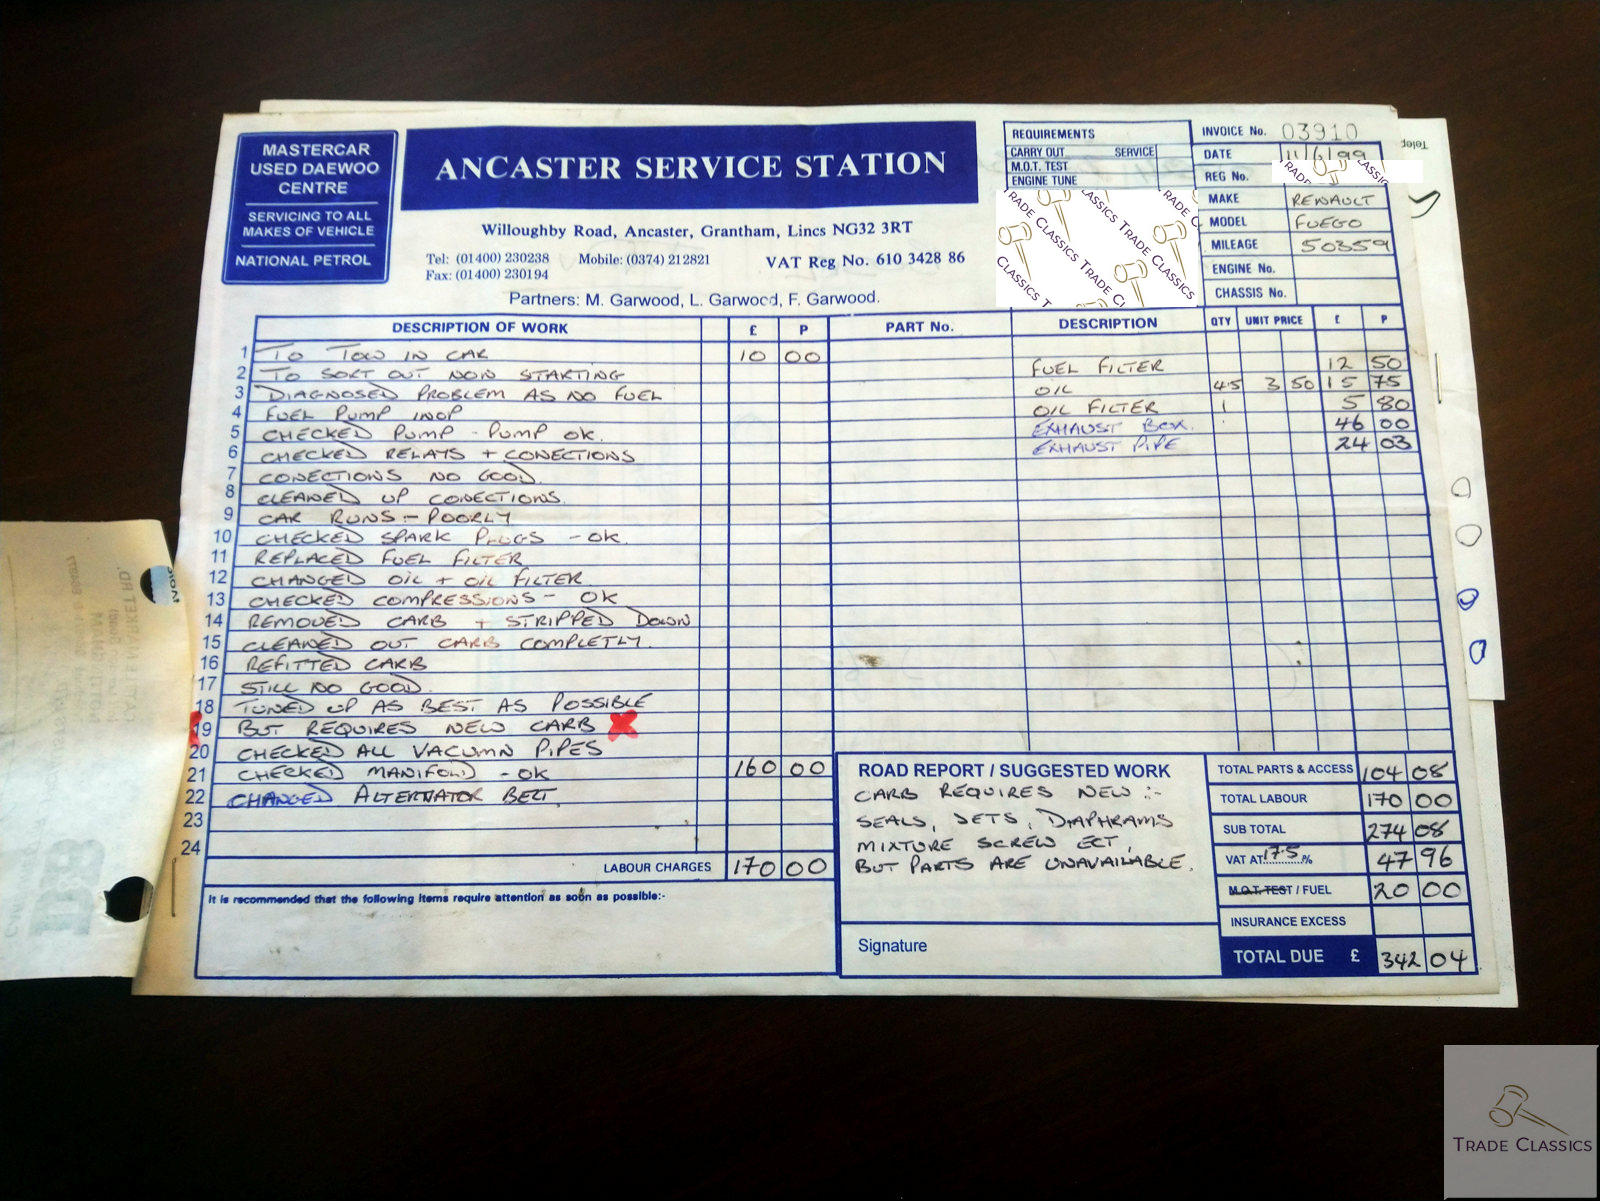 MASTERCAR
USED DAEWOO
CENTRE
SERVICING TO ALL
MAKES OF VEHICLE
NATIONAL PETROL
ANCASTER SERVICE STATION
Willoughby Road, Ancaster, Grantham, Lincs NG32 3RT
Tel: (01400) 230238 Mobile: (0374) 212821 VAT Reg No. 610 3428 86
Fax: (01400) 230194
Partners: M. Garwood, L. Garwood, F. Garwood.
REQUIREMENTS
CARRY OUT SERVICE
M.O.T. TEST
ENGINE TUNE
INVOICE No. 03910
DATE 11/6/99
REG No.
MAKE RENAULT
MODEL FUEGO
MILEAGE 50359
ENGINE No.
CHASSIS No.
TRADE CLASSICS TRADE CLASSICS
DESCRIPTION OF WORK £ P
1 TO TOW IN CAR 10 00
2 TO SORT OUT NON STARTING
3 DIAGNOSED PROBLEM AS NO FUEL
4 FUEL PUMP INOP
5 CHECKED PUMP - PUMP OK.
6 CHECKED RELAYS + CONECTIONS
7 CONECTIONS NO GOOD.
8 CLEANED UP CONECTIONS.
9 CAR RUNS :- POORLY
10 CHECKED SPARK PLUGS - OK.
11 REPLACED FUEL FILTER
12 CHANGED OIL + OIL FILTER.
13 CHECKED COMPRESSIONS - OK
14 REMOVED CARB + STRIPPED DOWN
15 CLEANED OUT CARB COMPLETLY.
16 REFITTED CARB
17 STILL NO GOOD.
18 TUNED UP AS BEST AS POSSIBLE
19 BUT REQUIRES NEW CARB X
20 CHECKED ALL VACUMN PIPES
21 CHECKED MANIFOLD - OK 160 00
22 CHANGED ALTERNATOR BELT.
23
24
LABOUR CHARGES 170 00
It is recommended that the following items require attention as soon as possible:-
PART No. DESCRIPTION QTY UNIT PRICE £ P
FUEL FILTER 12 50
OIL 4.5 3 50 15 75
OIL FILTER 1 5 80
EXHAUST BOX. 46 00
EXHAUST PIPE 24 03
ROAD REPORT / SUGGESTED WORK
CARB REQUIRES NEW :-
SEALS, JETS, DIAPHRAMS
MIXTURE SCREW ECT,
BUT PARTS ARE UNAVAILABLE.
Signature
TOTAL PARTS & ACCESS 104 08
TOTAL LABOUR 170 00
SUB TOTAL 274 08
VAT AT 17.5 % 47 96
M.O.T. TEST / FUEL 20 00
INSURANCE EXCESS
TOTAL DUE £ 342 04
TRADE CLASSICS